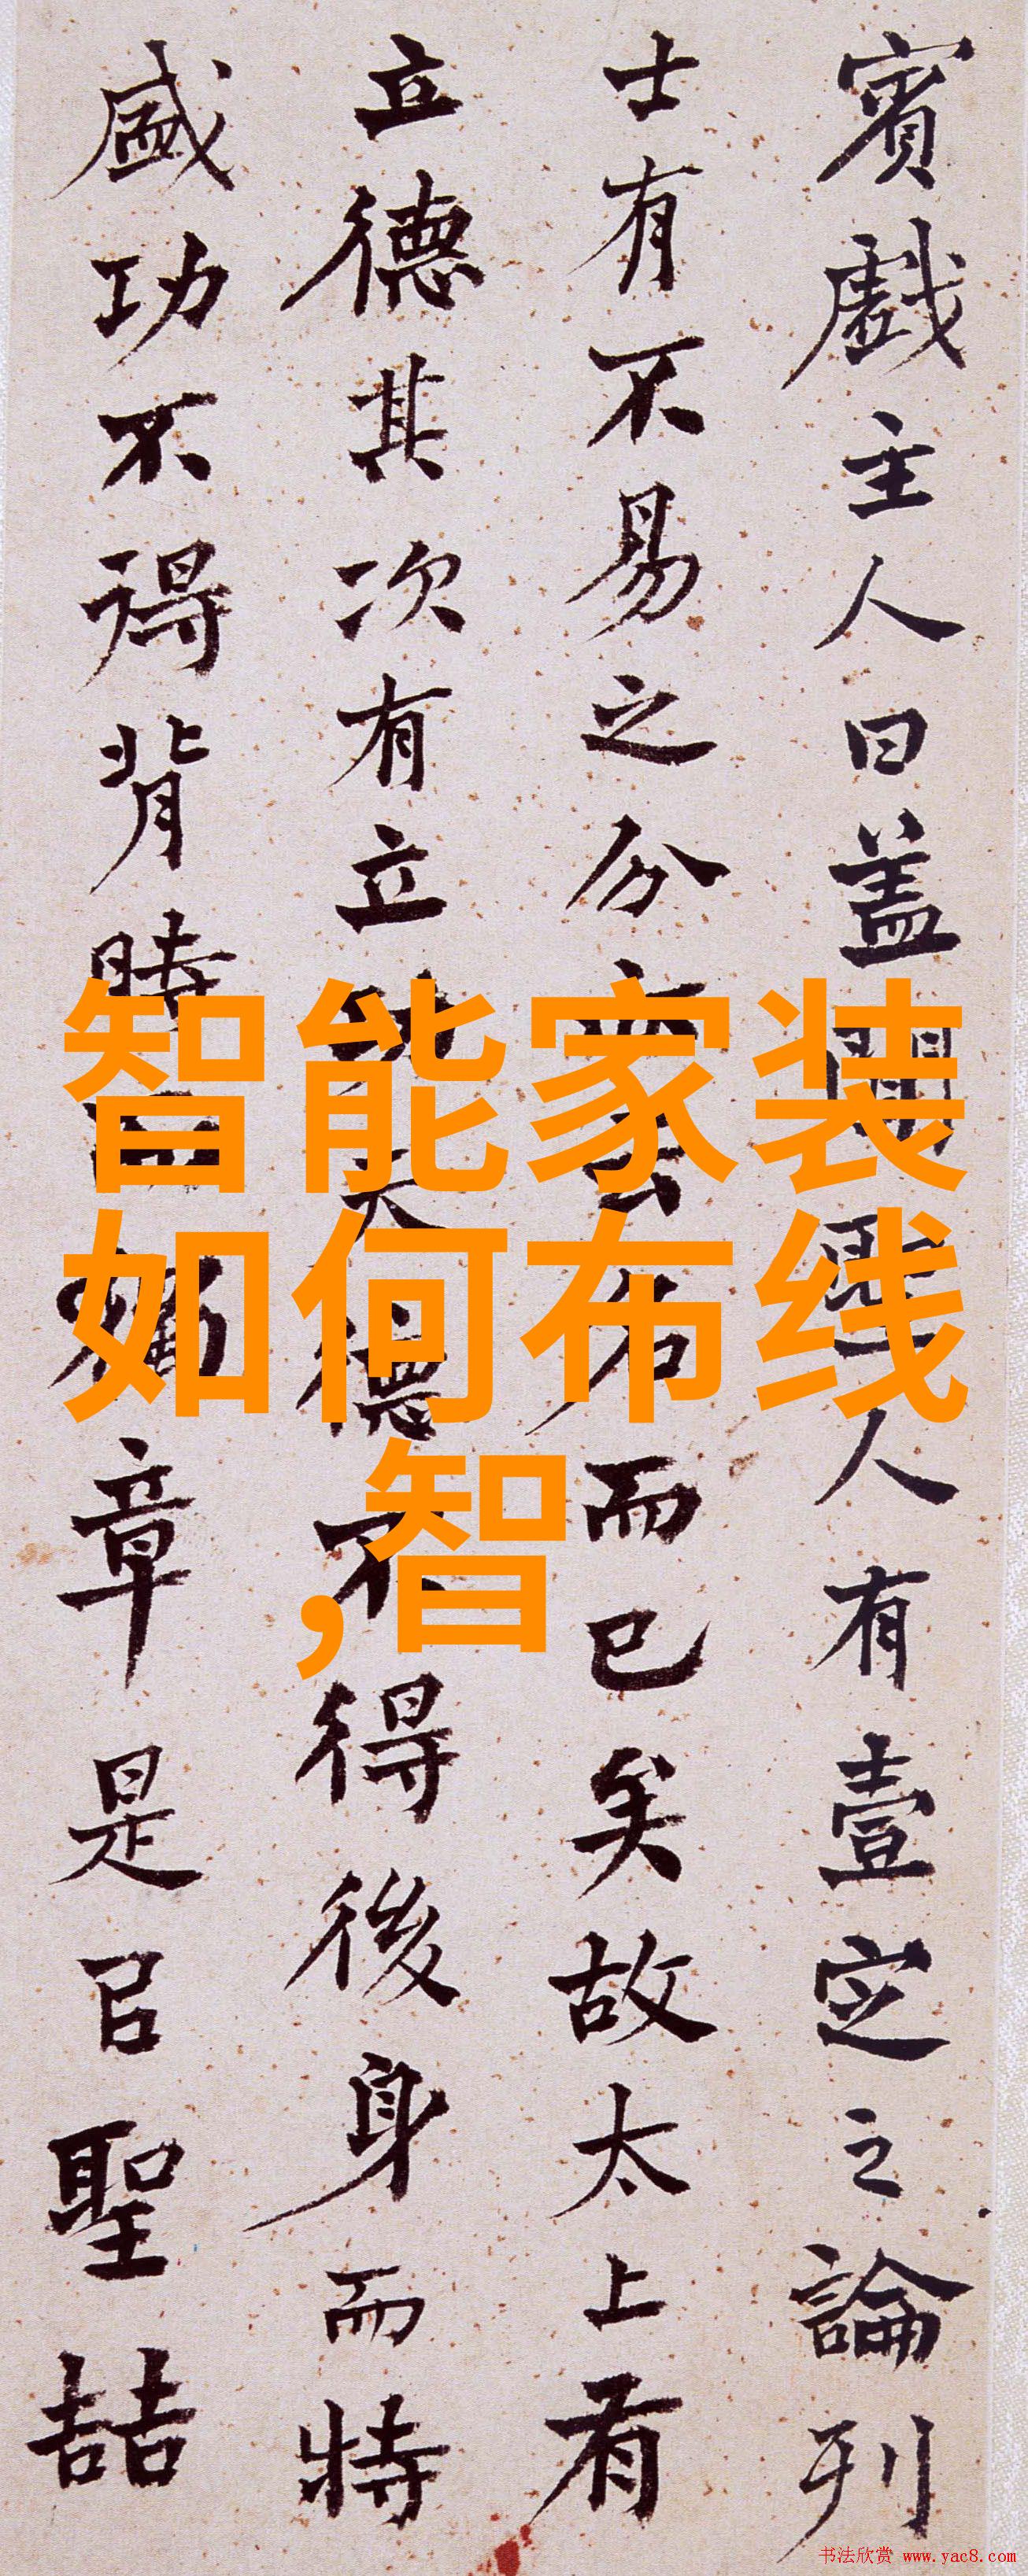 賓戲主人曰盖聞聖人有壹定之論列
士有不易之分亦云名而已矣故太上有
立德其次有立功夫德不得後身而特
盛功不得背時而獨章是㠯聖喆
智能家装
如何布线
,智
书法欣赏 www.yac8.com